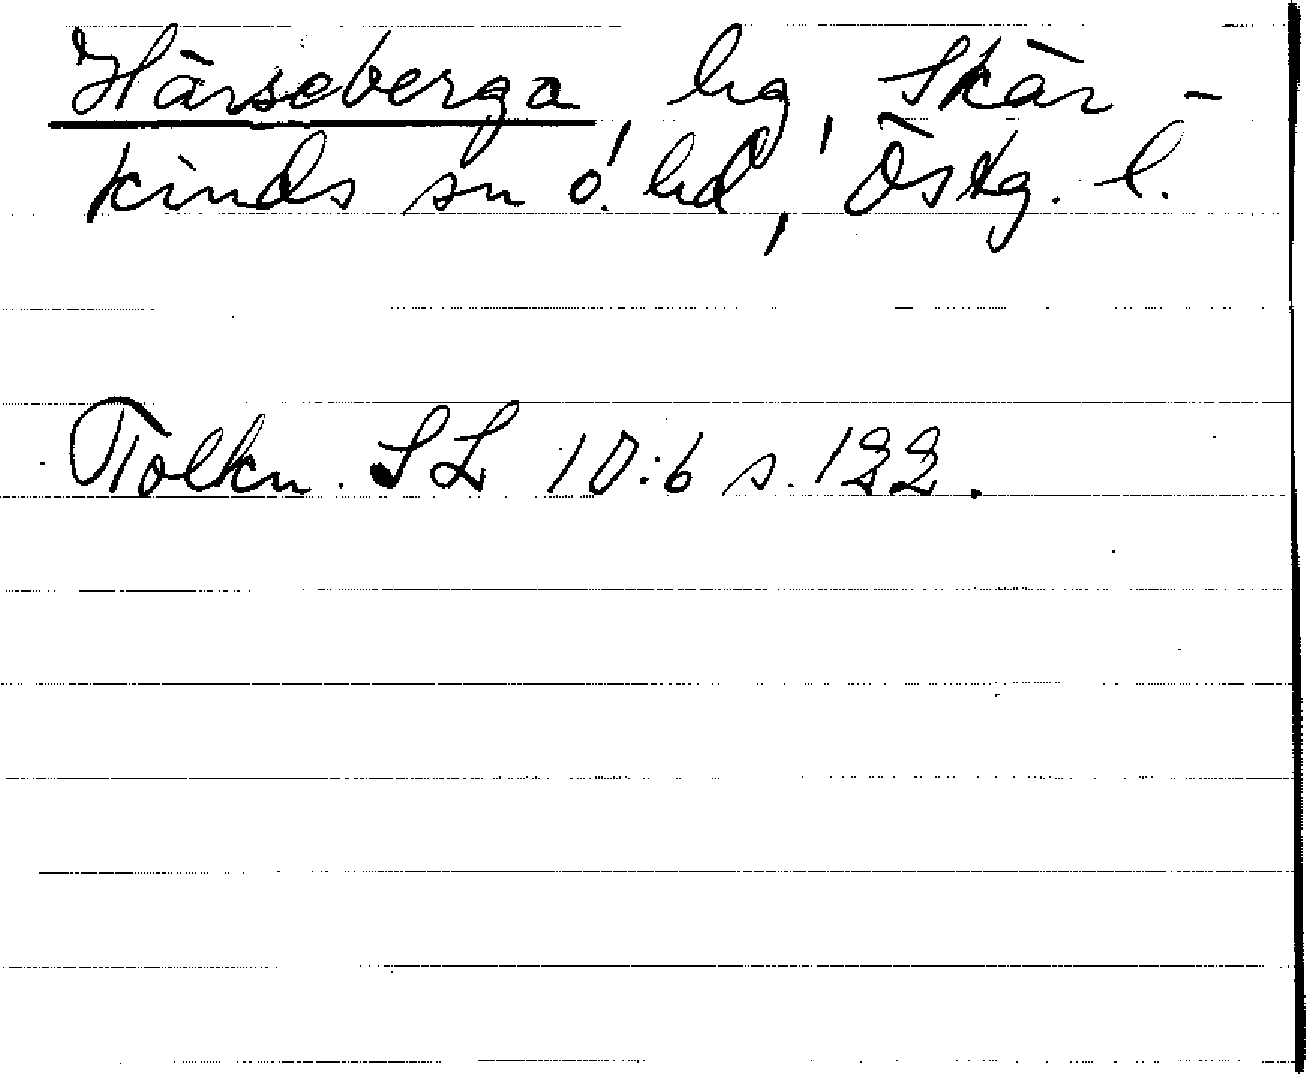 Härseberga, hg, Skär-
kinds sn o. hd, Östg. l.
Tolkn. SL 10:6 s. 122.